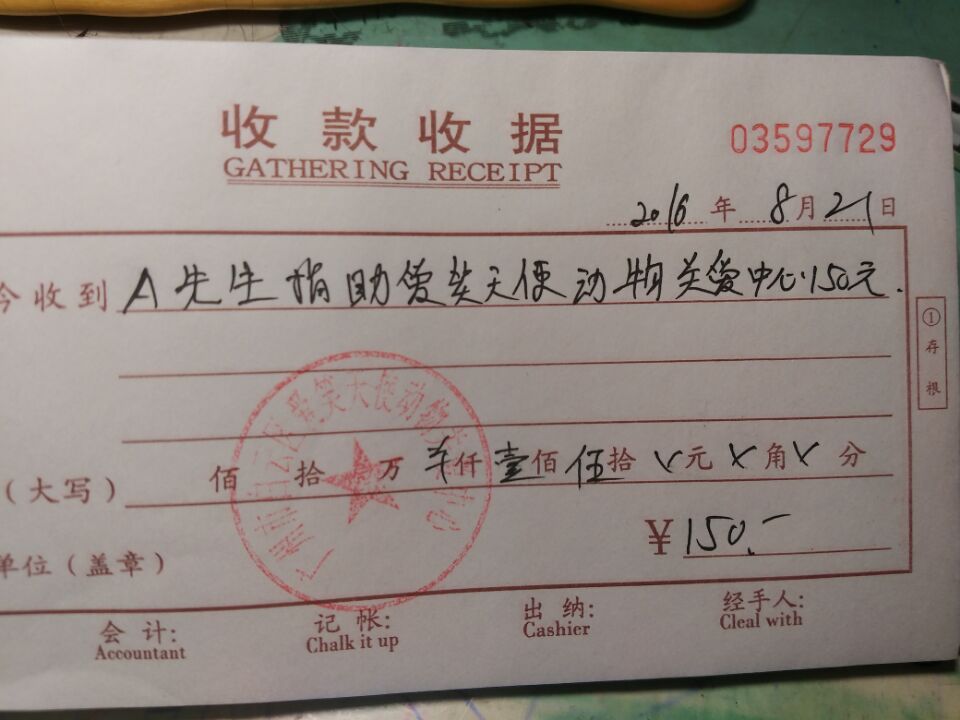 收款收据
GATHERING RECEIPT
03597729
2016年8月21日
今收到 A先生捐助爱笑天使动物关爱中心150元.
①存根
(大写) 佰 拾 万 仟壹佰伍拾 元 角 分
¥150.-
单位(盖章)
会计: 记帐: 出纳: 经手人:
Accountant Chalk it up Cashier Cleal with